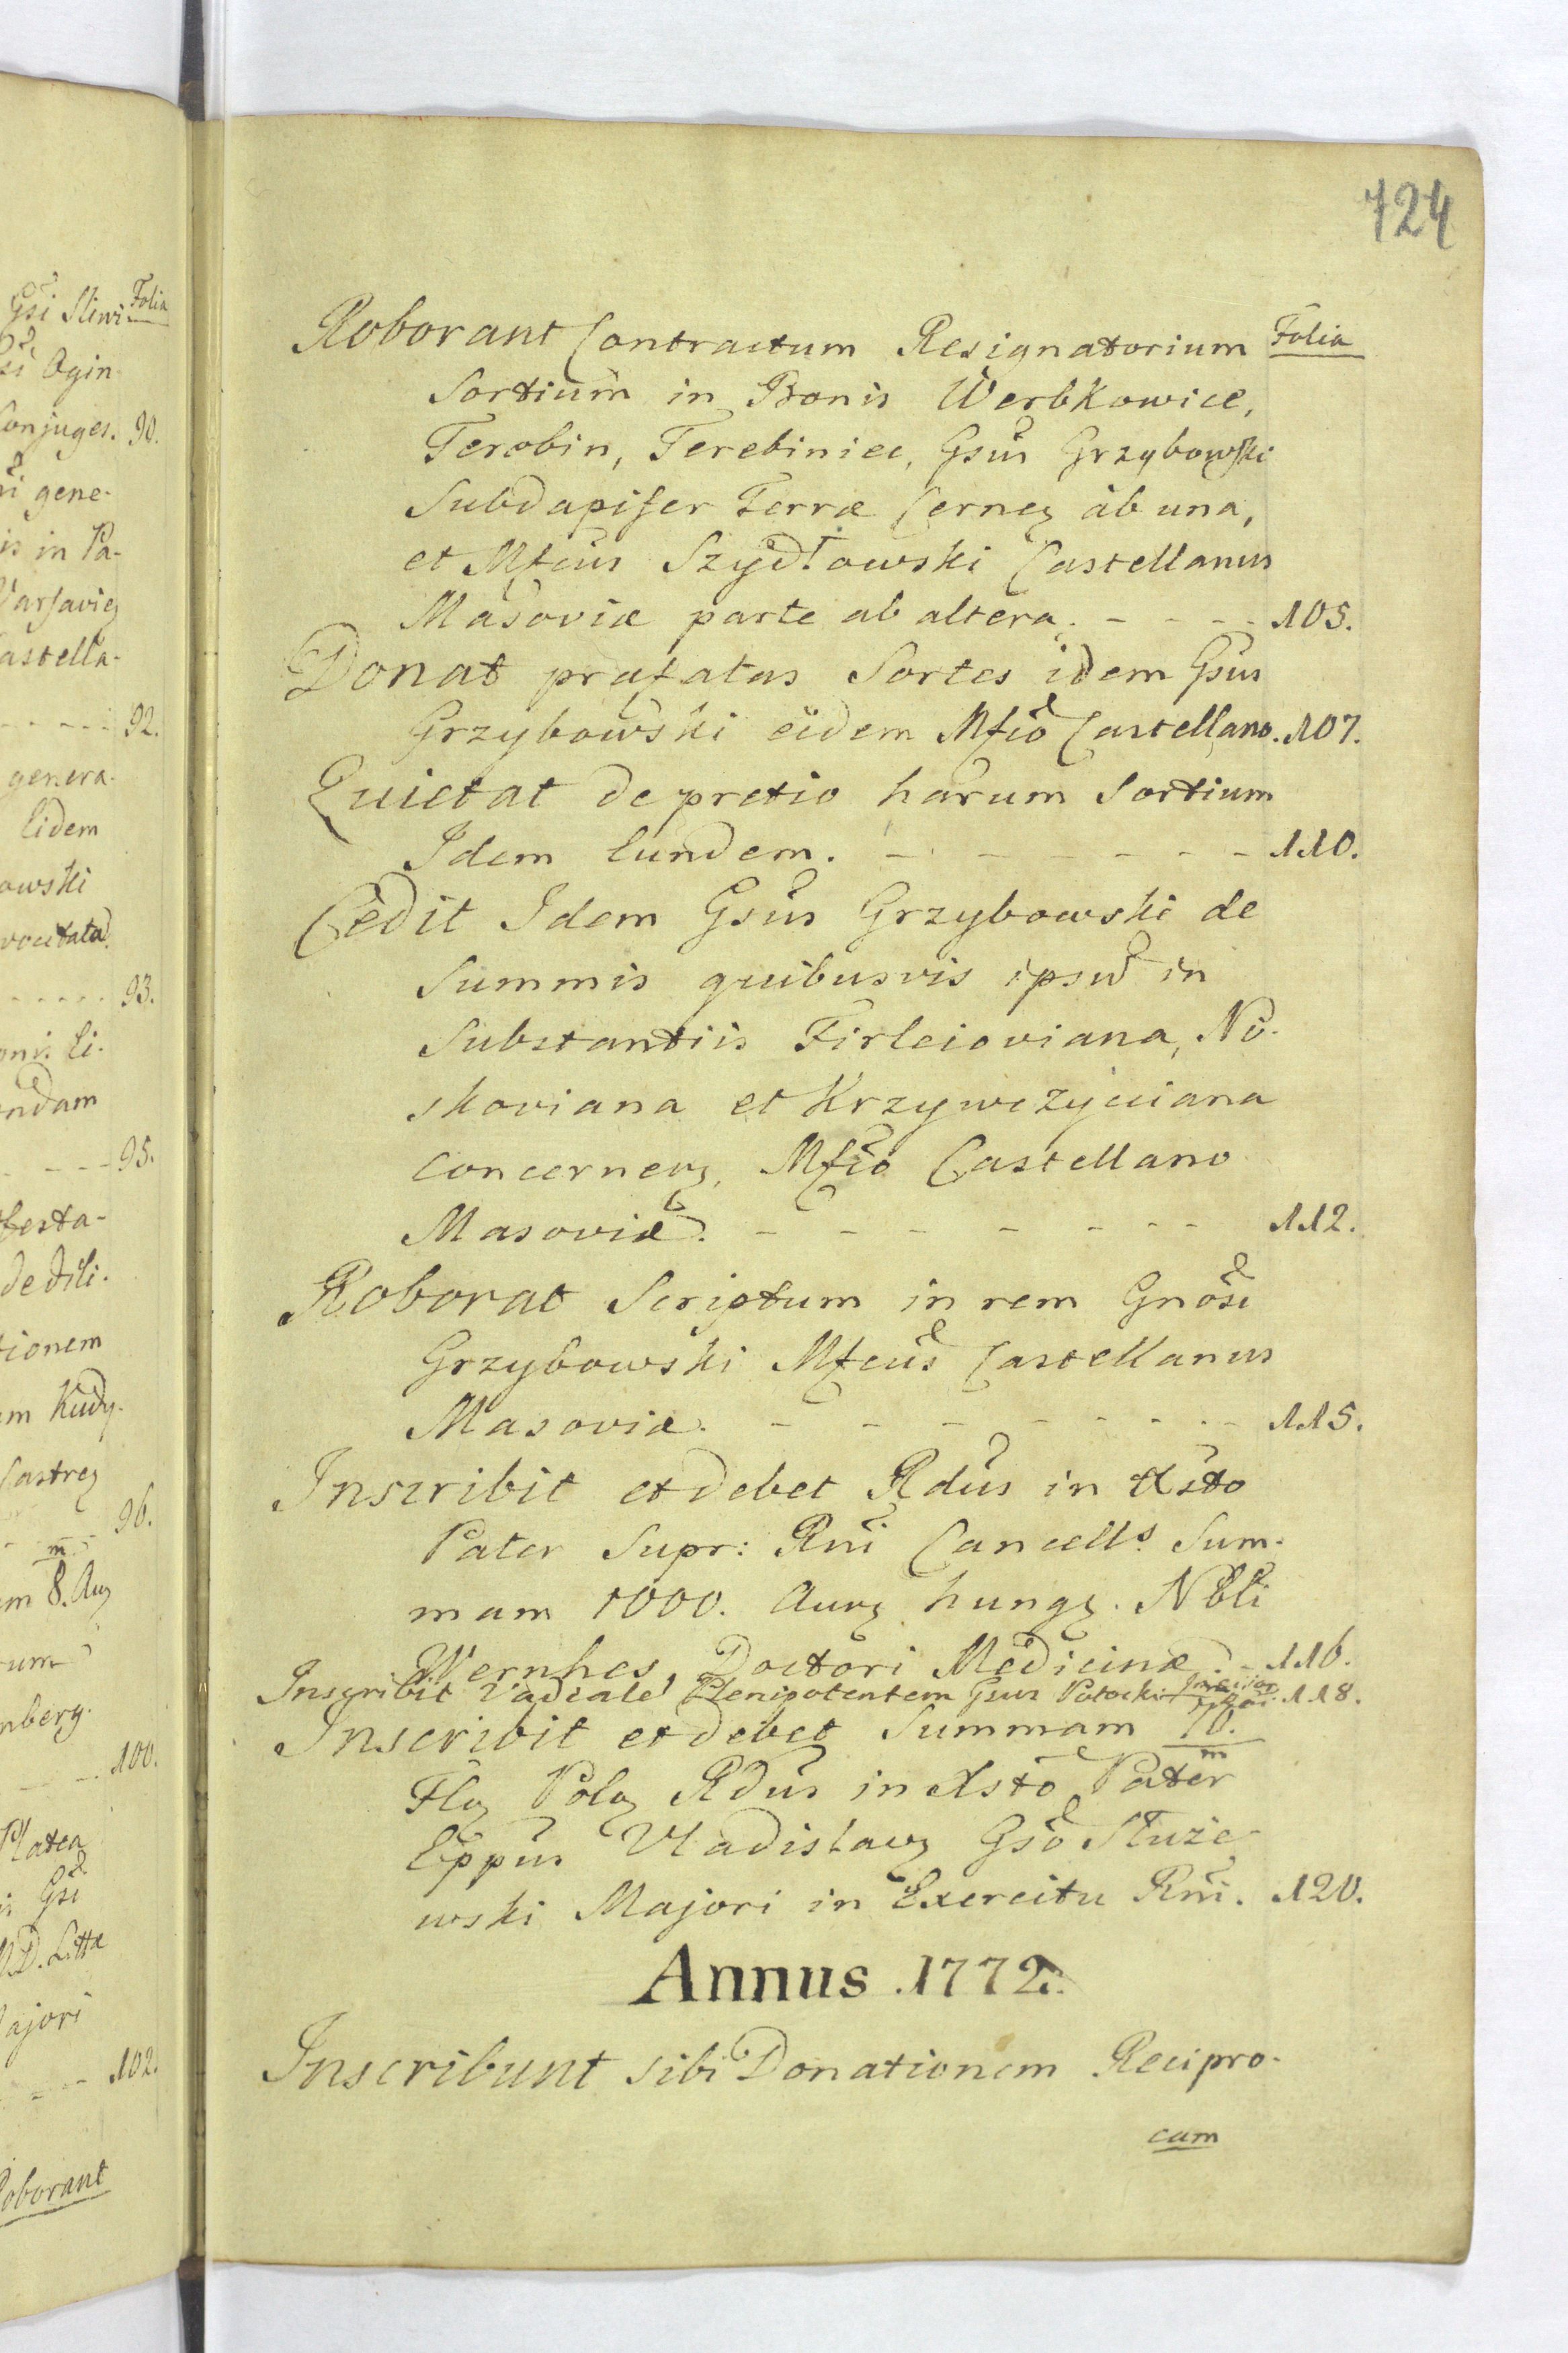 724
Folia
Roborant Contractum Resignatorium
Sortium in Bonis Werbkowice,
Terobin, Terebiniec, Gsus Grzybowski
Subdapifer Terræ Cernen ab una,
et Mfcus Szydłowski Castellanus
Masoviæ parte ab altera. - - - - 105.
Donat præfatas Sortes idem Gsus
Grzybowski eidem Mfco Castellano. 107.
Quietat de pretio harum Sortium
Idem Eundem. - - - - - - 110.
Cedit Idem Gsus Grzybowski de
Summis quibusvis ipsũ in
Substantiis Firleioviana, No-
skoviana et Krzywczyciana
concernen, Mfco Castellano
Masoviæ. - - - - - - - 112.
Roborat Scriptum in rem Gnosi
Grzybowski Mfcus Castellanus
Masoviæ. - - - - - - - - 115.
Inscribit et debet Rdus in Xsto
Pater Supr: Rni Cancells Sum-
mam 1000. Aur hung. Nobli
Wernhes, Doctori Medicinæ. - 116.
Inscribit Vadiale Plenipotentem Gsus Potocki 118.
Inscribit et debet Summam 70.
m
Flo Pol Rdus in Xsto Pater
Eppus Vladislav Gso Służe-
wski Majori in Exercitu Rni. 120.
Annus .1772.
Inscribunt sibi Donationem Recipro-
cam
Gsi Sliwi- Folia
Ogin-
Conjuges. 90.
gene-
is in Pa-
Varsavien
astella-
- - - - 92.
genera-
Eidem
owski
- - - - - 93.
ndam
- - - - 95.
festa-
de dili-
tionem
Kudy-
Castren
96.
m
8. Aug
nberg.
- - . 100.
Platea
Gsi
Littæ
ajori
- - - - 102.
Roborant